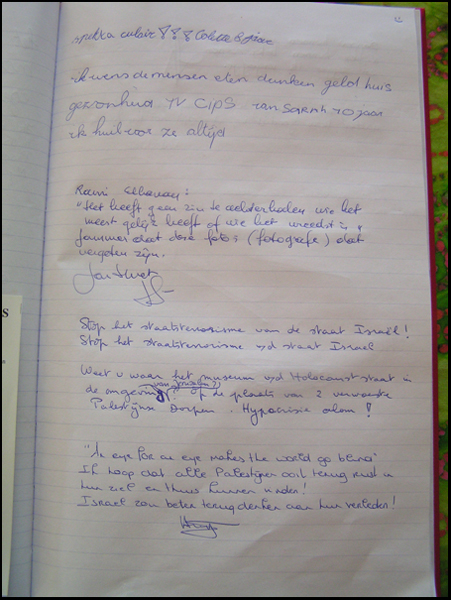 ik wens de mensen eten drinken geld huis
gezondheid TV CIPS van SARAH 10 jaar
ik huil voor ze altijd
Rami Elhanan:
"Het heeft geen zin te achterhalen wie het
meest gelijk heeft of wie het wreedst is
Jammer dat deze foto's (fotografe) dat
vergeten zijn.
Stop het staatsterrorisme van de staat Israël!
Stop het staatsterrorisme v/d staat Israel
Weet u waar het museum v/d Holocaust staat in
van Jerusalem?!
de omgeving? Op de plaats van 2 verwoeste
Palestijnse Dorpen. Hypocrisie alom!
"An eye for an eye makes the world go blind"
Ik hoop dat alle Palestijnen ooit terug rust in
hun ziel en thuis kunnen vinden!
Israel zou beter terugdenken aan hun verleden!